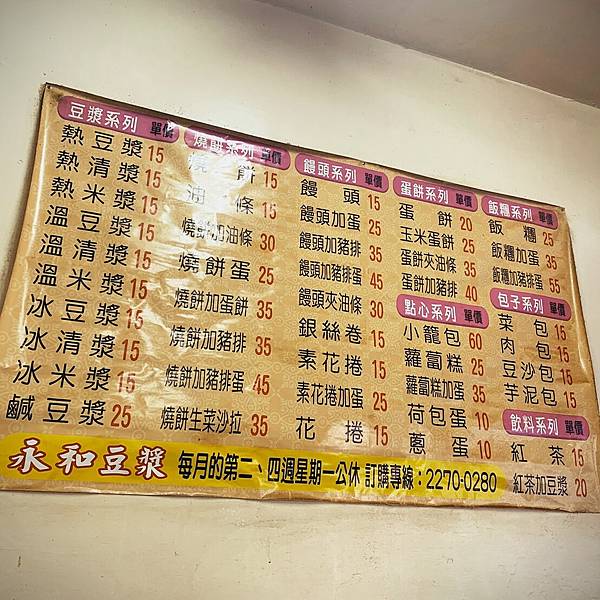 豆漿系列 單價
熱豆漿 15
熱清漿 15
熱米漿 15
溫豆漿 15
溫清漿 15
溫米漿 15
冰豆漿 15
冰清漿 15
冰米漿 15
鹹豆漿 25
燒餅系列 單價
燒餅 15
油條 15
燒餅加油條 30
燒餅蛋 25
燒餅加蛋餅 35
燒餅加豬排 35
燒餅加豬排蛋 45
燒餅生菜沙拉 35
饅頭系列 單價
饅頭 15
饅頭加蛋 25
饅頭加豬排 35
饅頭加豬排蛋 45
饅頭夾油條 30
銀絲卷 15
素花捲 15
素花捲加蛋 25
花捲 15
蛋餅系列 單價
蛋餅 20
玉米蛋餅 25
蛋餅夾油條 35
蛋餅加豬排 40
點心系列 單價
小籠包 60
蘿蔔糕 25
蘿蔔糕加蛋 35
荷包蛋 10
蔥蛋 10
飯糰系列 單價
飯糰 25
飯糰加蛋 35
飯糰加豬排蛋 55
包子系列 單價
菜包 15
肉包 15
豆沙包 15
芋泥包 15
飲料系列 單價
紅茶 15
紅茶加豆漿 20
永和豆漿 每月的第二、四週星期一公休 訂購專線:2270-0280